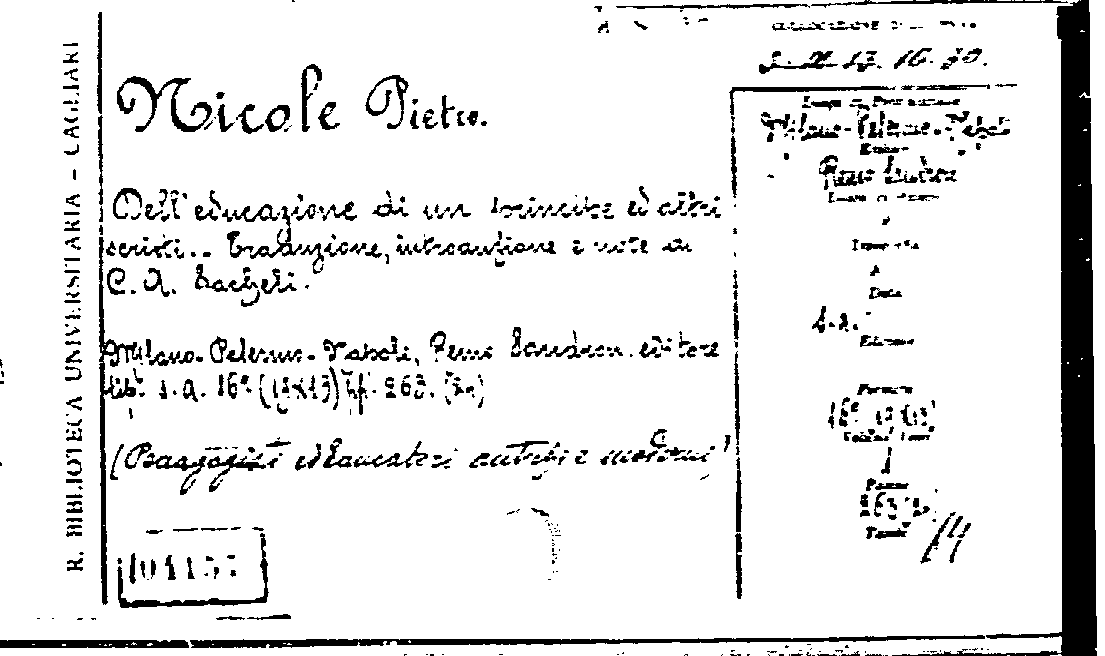 R. BIBLIOTECA UNIVERSITARIA - CAGLIARI
Nicole Pietro.
Dell'educazione di un principe ed altri
scritti.. Traduzione, introduzione e note di
C. A. Sacheli.
Milano-Palermo-Napoli, Remo Sandron editore
tip. s.a. 16° (19x13) pp. 263. (2n)
(Pedagogisti ed educatori antichi e moderni)
COLLOCAZIONE DELL'OPERA
16. 30.
Luogo di Pubblicazione
Milano-Palermo-Napoli
Editore
Remo Sandron
Luogo di stampa
Tipografia
Data
s.a.
Edizione
Formato
16° (19x13)
Volumi
1
Pagine
263
Tavole
14